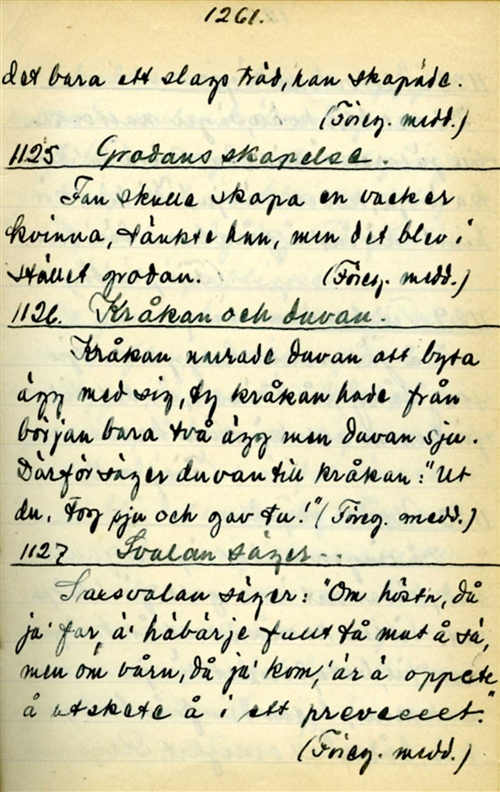 1261.
det bara ett slags träd, han skapade.
(Föreg. medd.)
1125 Grodans skapelse.
Fan skulle skapa en vacker
kvinna, tänkte han, men det blev i
stället grodan. (Föreg. medd.)
1126. Kråkan och duvan.
Kråkan narrade duvan att byta
ägg med sig, ty kråkan hade från
början bara två ägg men duvan sju.
Därför säger duvan till kråkan: "Ut
du, tog sju och gav tu!" (Föreg. medd.)
1127 Svalan säger...
svalan säger: "Om höstn, då
ja' far, ä' häbärje fullt tå mat å sä,
men om vårn, då ja' kom, 'är ä oppete
å utskete å i ett
(Föreg. medd.)